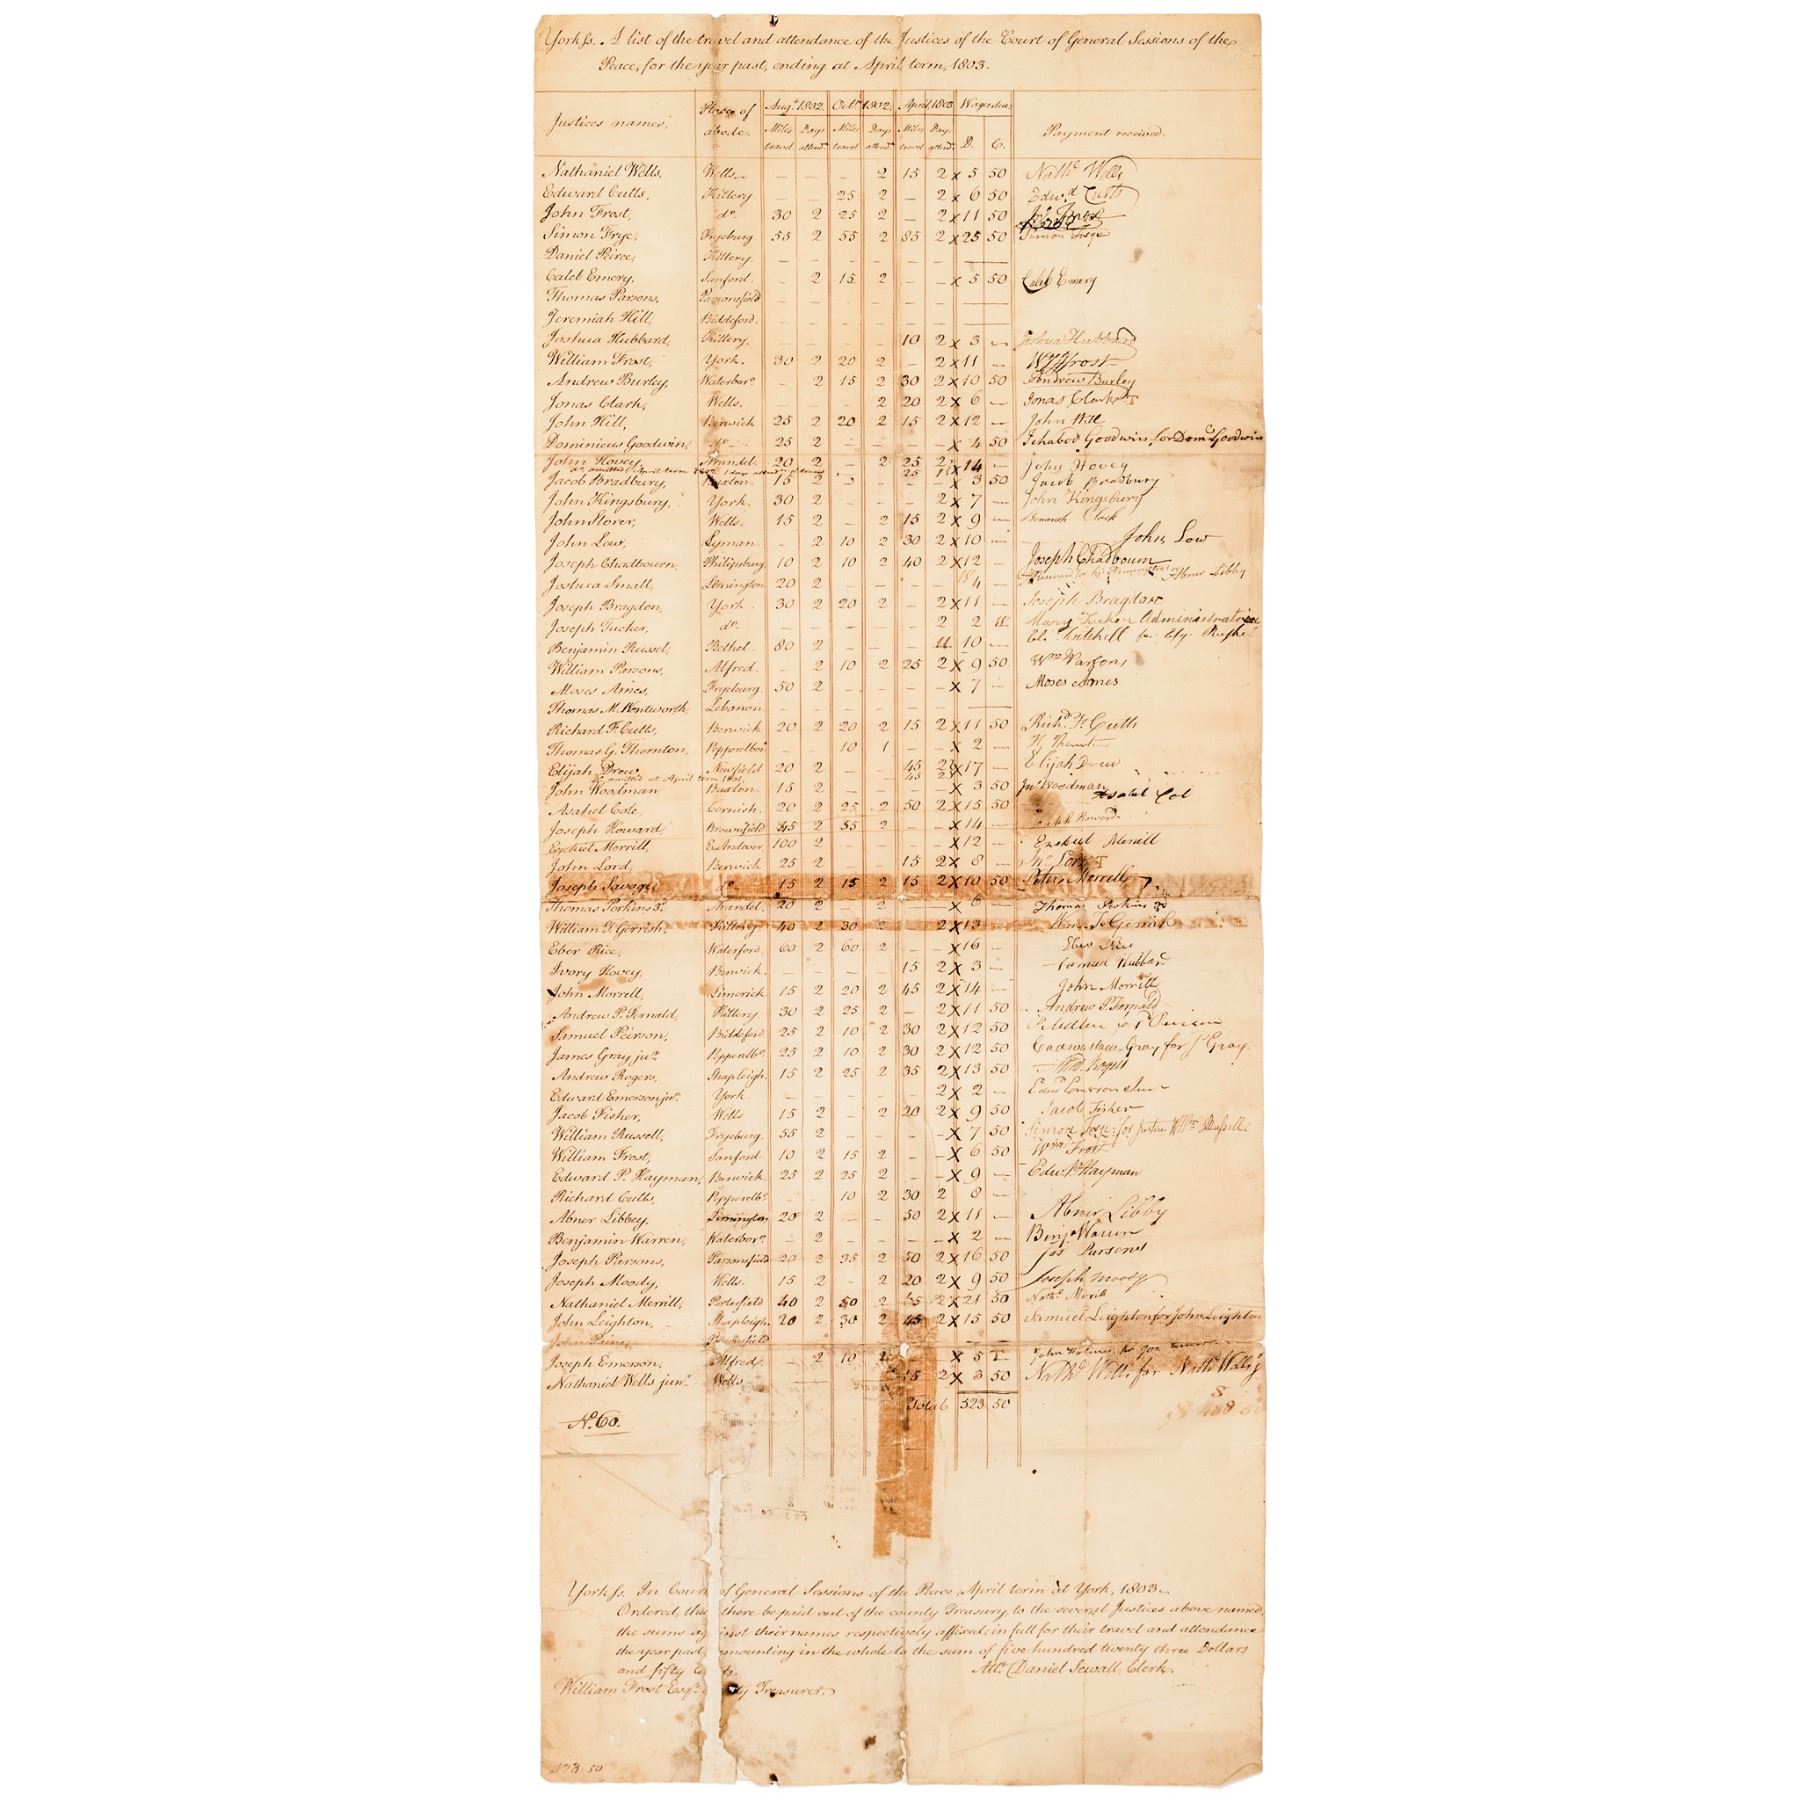 York ss. A list of the travel and attendance of the Justices of the Court of General Sessions of the
Peace, for the year past, ending at April term, 1803.
Justices names, Place of abode. Augt. 1802. Octr. 1802. April, 1803 Wages due. Payment received.
Miles travel Days attendce Miles travel Days attendce Miles travel Days attendce D. C.
Nathaniel Wells, Wells — — — 2 15 2 x 5 50 Nathl Wells
Edward Cutts, Kittery — — 25 2 — 2 x 6 50 Edwd Cutts
John Frost, do 30 2 25 2 — 2 x 11 50 Jno Frost
Simon Frye, Fryeburg 55 2 55 2 85 2 x 25 50 Simon Frye
Daniel Peirce, Kittery. — — — — — — —
Caleb Emery, Sanford. — 2 15 2 — — x 5 50 Caleb Emery
Thomas Parsons, Parsonsfield — — — — — — —
Jeremiah Hill, Biddeford. — — — — — — —
Joshua Hubbard, Kittery. — — — — 10 2 x 3 — Joshua Hubbard
William Frost, York. 30 2 20 2 — 2 x 11 — Wm Frost
Andrew Burley, Waterboro. — 2 15 2 30 2 x 10 50 Andrew Burley
Jonas Clark, Wells. — — — 2 20 2 x 6 — Jonas Clark
John Hill, Berwick 25 2 20 2 15 2 x 12 — John Hill
Dominicus Goodwin, do 25 2 — — — — x 4 50 Ichabod Goodwin for Domcs Goodwin
John Hovey Arundel. 20 2 — 2 25 2 x 14 — John Hovey
do omitted April term 1 days attendce & travel 25 1
Jacob Bradbury, Buxton. 15 2 — — — — x 3 50 Jacob Bradbury
John Kingsbury, York. 30 2 — — — 2 x 7 — John Kingsbury
John Storer, Wells. 15 2 — 2 15 2 x 9 — Clark
John Low, Lyman. — 2 10 2 30 2 x 10 — John Low
Joseph Chadbourn, Philipsburg. 10 2 10 2 40 2 x 12 — Joseph Chadbourn
Joshua Small, Limington 20 2 — — — — 4 — Abner Libby
Joseph Bragdon, York. 30 2 20 2 — 2 x 11 — Joseph Bragdon
Joseph Tucker, do — — — — — 2 2 Mary Tucker Administratrix
Benjamin Russel, Bethel 80 2 — — — 10 — Twitchell for
William Parsons, Alfred. — 2 10 2 25 2 x 9 50 Wm Parsons
Moses Ames, Fryeburg. 50 2 — — — — x 7 — Moses Ames
Thomas M. Wentworth, Lebanon — — — — — — —
Richard F. Cutts, Berwick 20 2 20 2 15 2 x 11 50 Richd F. Cutts
Thomas G. Thornton, Pepperellboro — — 10 1 — — x 2 —
Elijah Drew Newfield 20 2 — — 45 2 x 17 — Elijah Drew
Do omitted at April term 1801 45 2
John Woodman Buxton. 15 2 — — — — x 3 50 Jno Woodman
Asahel Cole, Cornish. 20 2 25 2 50 2 x 15 50 Asahel Col
Joseph Howard, Brownfield 45 2 55 2 — — x 14 — Joseph Howard
Ezekiel Merrill, E. Andover. 100 2 — — — — x 12 — Ezekiel Merrill
John Lord, Berwick 25 2 — — 15 2 x 8 — Jno Lord
Joseph Savage, do 15 2 15 2 15 2 x 10 50 Peter Morrell
Thomas Perkins 3d. Arundel. 20 2 — 2 — — x 6 — Thomas Perkins 3d
William T. Gerrish, Kittery 40 2 30 2 — 2 x 13 — Wm. T. Gerrish
Eber Rice, Waterford. 60 2 60 2 — — x 16 — Eber Rice
Ivory Hovey, Berwick. — — — — 15 2 x 3 — Samuel Hubbard
John Morrell, Limerick 15 2 20 2 45 2 x 14 — John Morrill
Andrew P. Fernald, Kittery. 30 2 25 2 — 2 x 11 50 Andrew P. Fernald
Samuel Peirson, Biddeford 25 2 10 2 30 2 x 12 50
James Gray junr. Pepperellbo. 25 2 10 2 30 2 x 12 50 Cadwallader Gray for Js Gray
Andrew Rogers, Shapleigh. 15 2 25 2 35 2 x 13 50 And. Rogers
Edward Emerson junr. York. — — — — — 2 x 2 — Edwd Emerson Junr
Jacob Fisher, Wells 15 2 — 2 20 2 x 9 50 Jacob Fisher
William Russell, Fryeburg. 55 2 — — — — x 7 50 Simon Frye for Justice Wm Russell
William Frost, Sanford. 10 2 15 2 — — x 6 50 Wm Frost
Edward P. Hayman, Berwick. 25 2 25 2 — — x 9 — Edwd P. Hayman
Richard Cutts, Pepperellbo. — — 10 2 30 2 8 —
Abner Libbey, Limington 20 2 — — 50 2 x 11 — Abner Libby
Benjamin Warren, Waterboro. — 2 — — — — x 2 — Benja Warren
Joseph Parsons, Parsonsfield 20 2 35 2 50 2 x 16 50 Jos Parsons
Joseph Moody, Wells. 15 2 — 2 20 2 x 9 50 Joseph Moody
Nathaniel Merrill, Porterfield 40 2 50 2 65 2 x 21 50 Nathl Merrill
John Leighton, Shapleigh. 20 2 30 2 45 2 x 15 50 Samuel Leighton for John Leighton
John Paine, Parsonsfield — —
Joseph Emerson, Alfred. — 2 10 2 x 5 — John Holmes for Jos Emerson
Nathaniel Wells junr. Wells 15 2 x 3 50 Nathl Wells for Nathl Wells jr
Total 523 50
No. 60.
York ss. In Court of General Sessions of the Peace April term at York, 1803.
Ordered, that there be paid out of the county Treasury, to the several Justices above named,
the sums against their names respectively affixed, in full for their travel and attendance
the year past, amounting in the whole to the sum of five hundred twenty three Dollars
and fifty cents. Attr. Daniel Sewall, Clerk.
William Frost Esqr. County Treasurer.
523 50